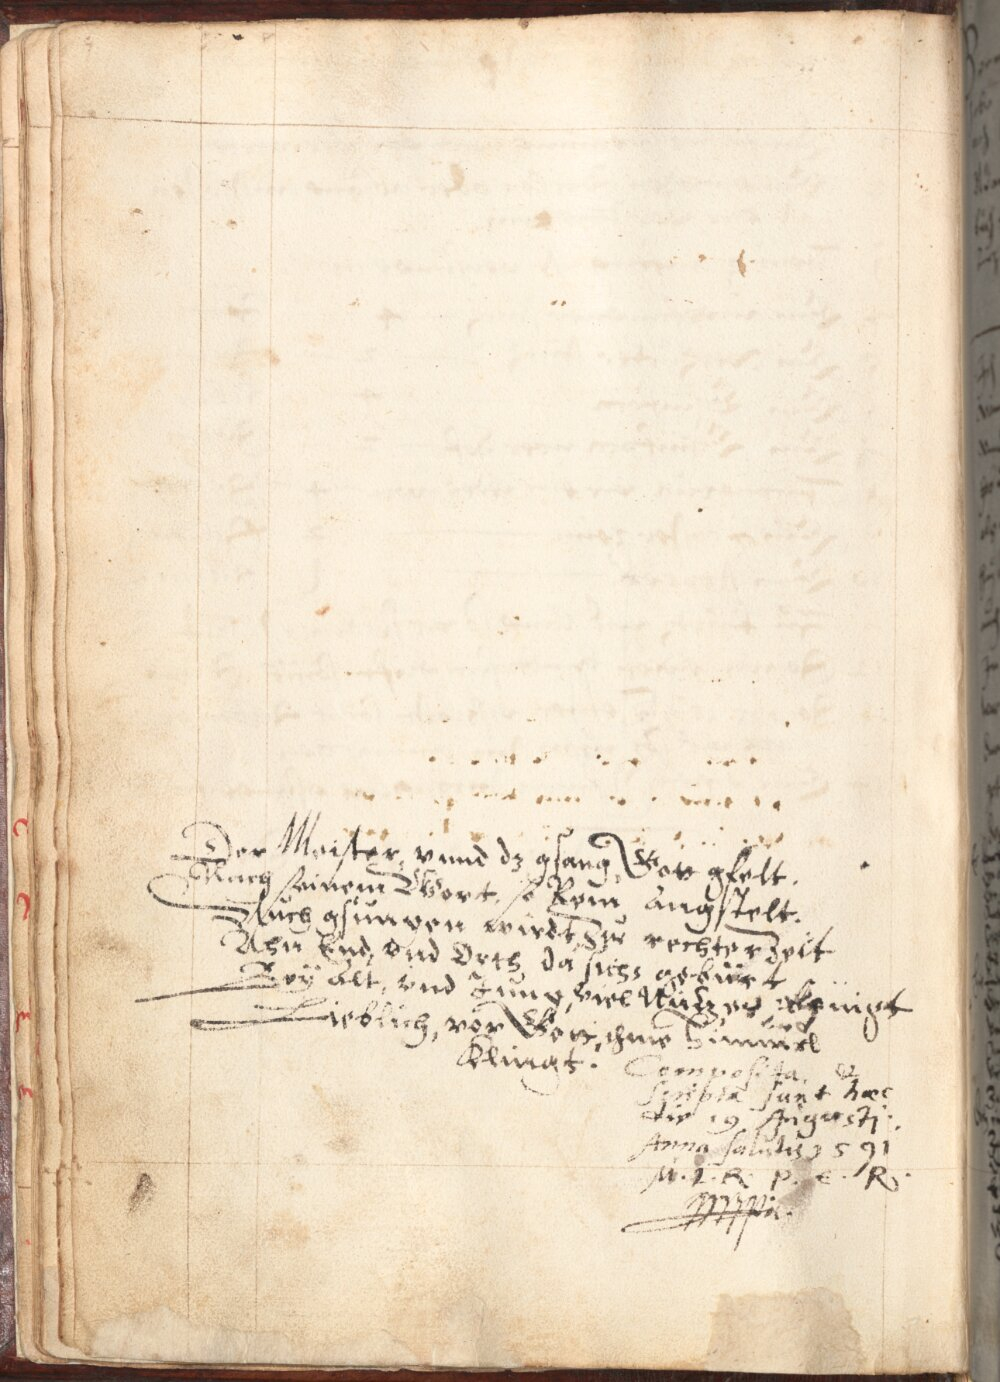 Der Meister, vnnd dz gsang, Gott gfelt.
Nach seinem Wort, so Rein angstelt.
Auch gsungen wirdt, zu rechter Zeit
Ahn End, vnd Orth, da sichs gebürt
Bey Alt, vnd Jung, viel Nutzes bringt
Lieblich, vor Gott, ihme Himmel
klingt.
Composita, &
scripta sunt haec
die 19 Augusti.
Anno salutis 1591
M. I. R. P. C. R.